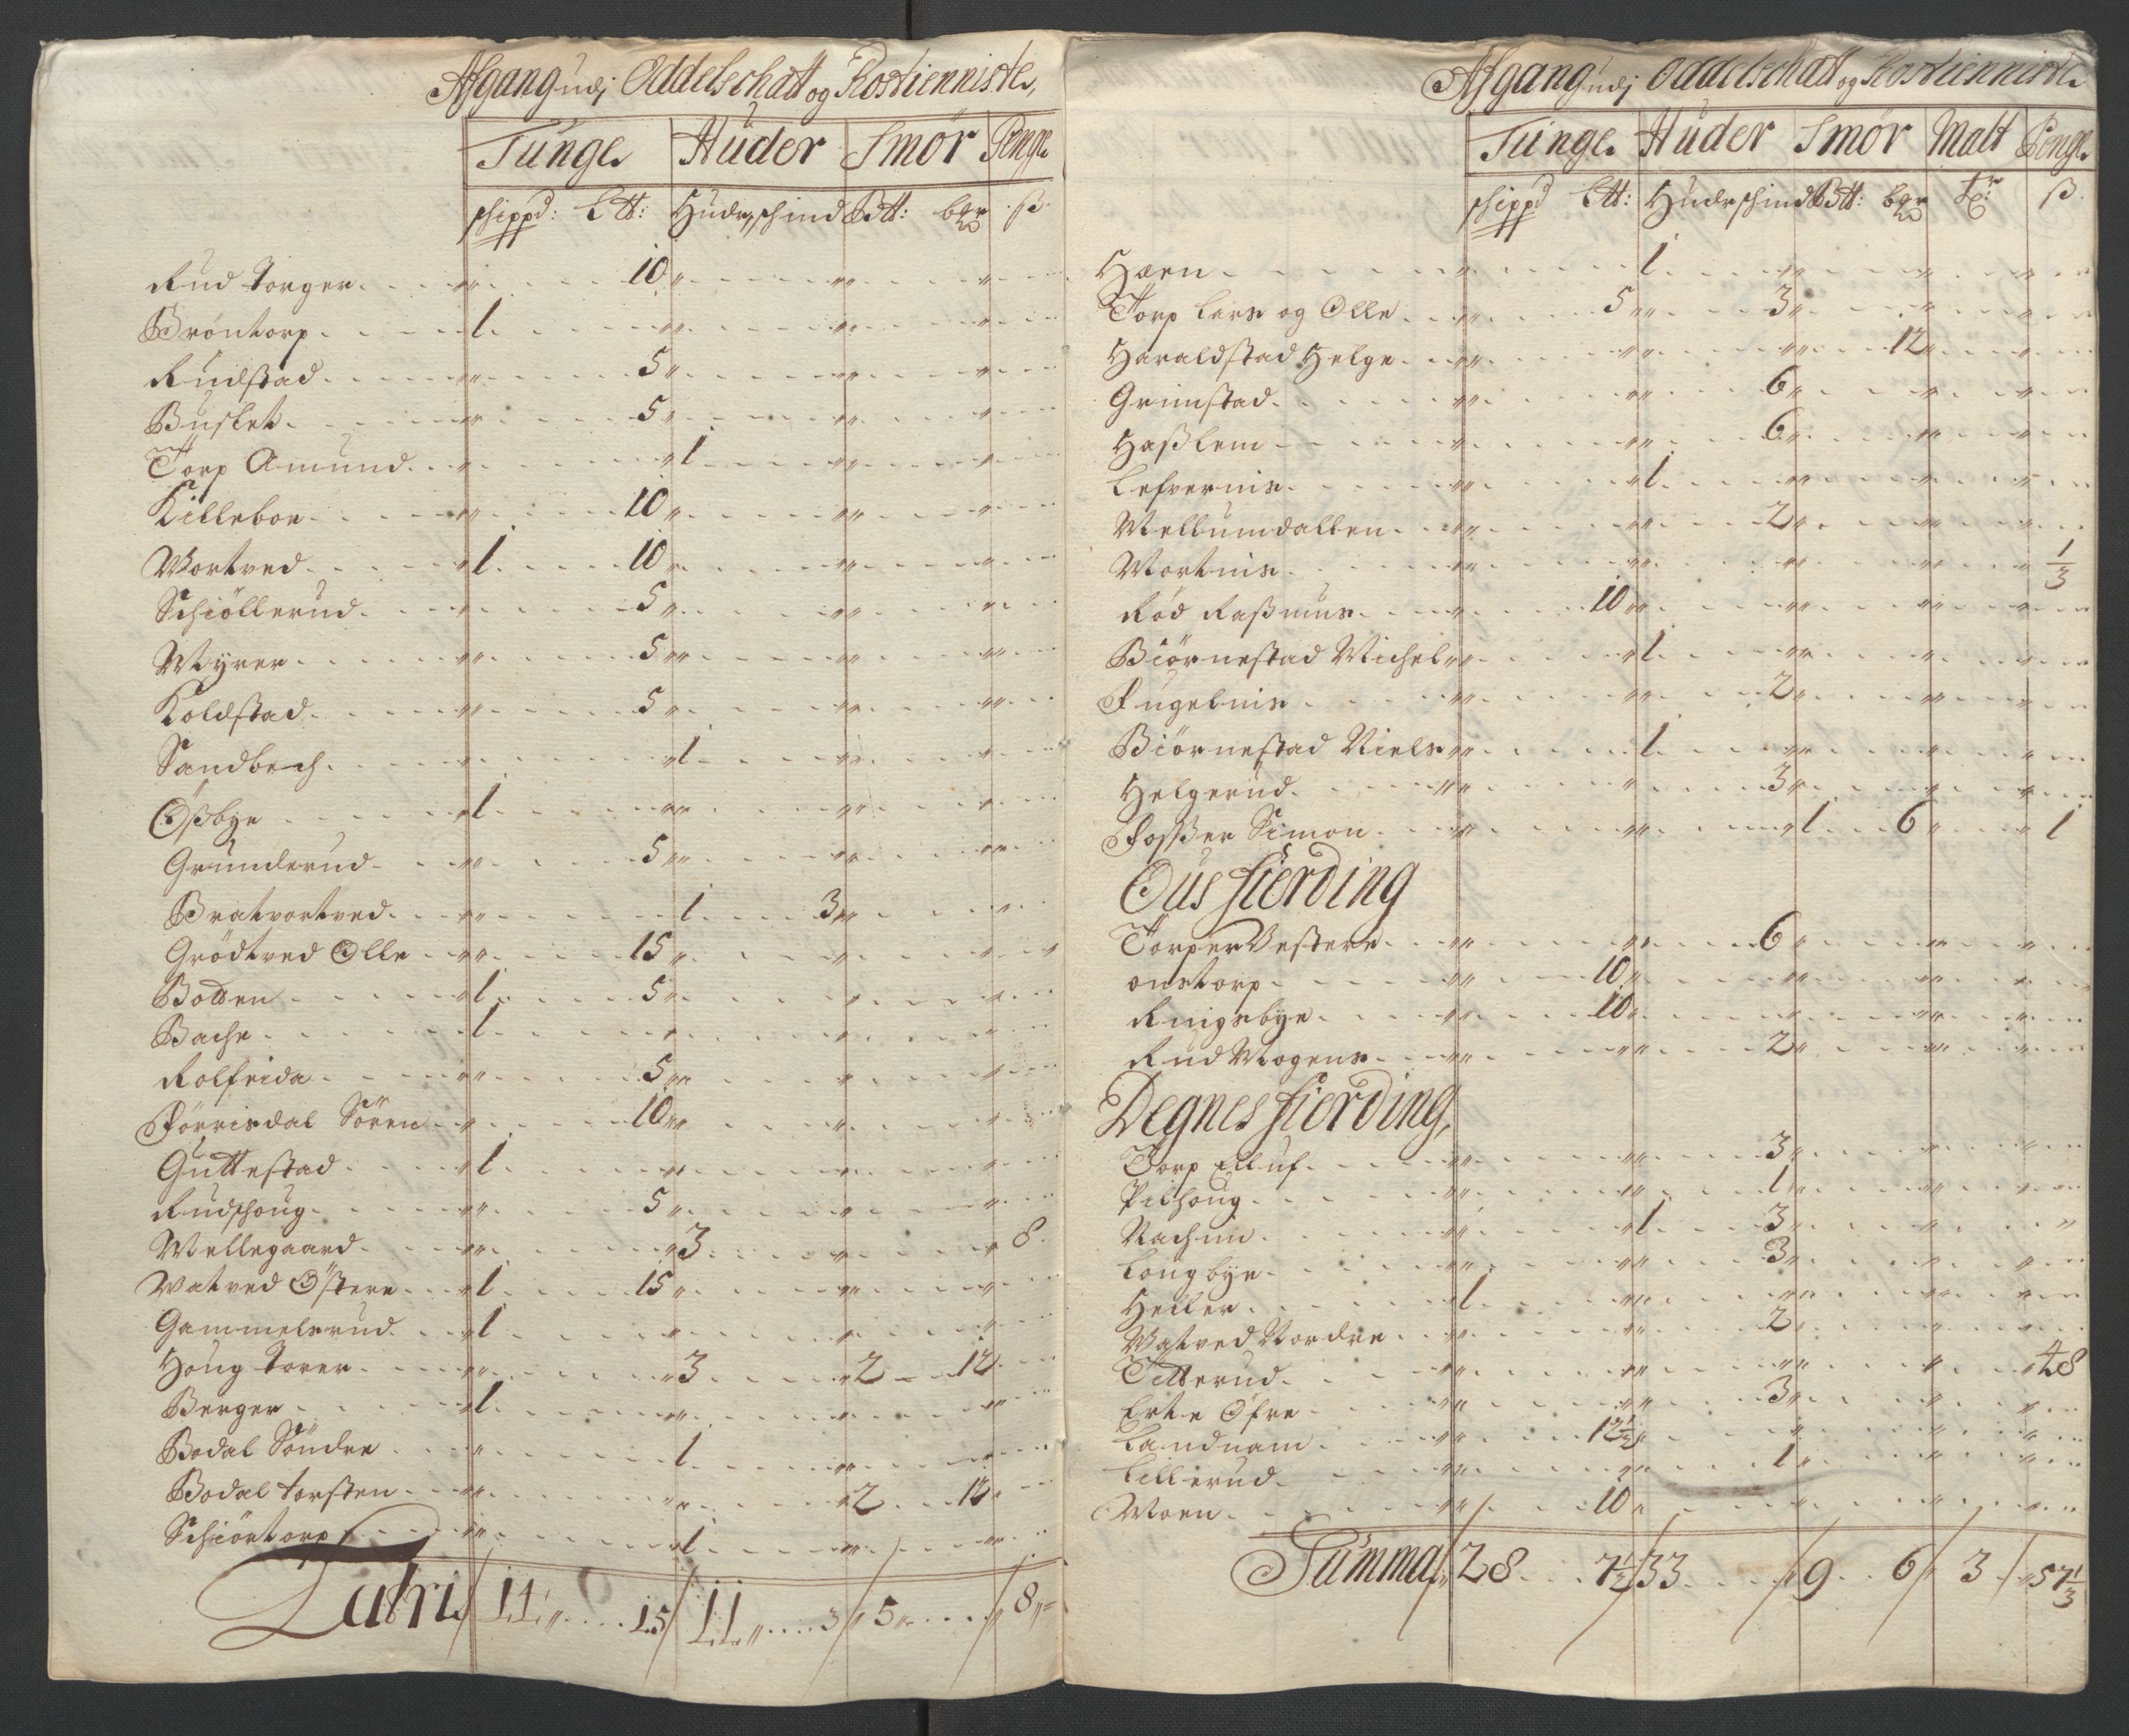 Afgang udj Oddelschatt og Rostienniste,
Tunge Huder Smör Penge
schippd: Ltt: Huder schind Btt: bgr ß.
Rud Torger 10
Bröntorp 1
Rudstad 5
Busket 5
Torp Amund 1
Killeboe 10
Mortved 1 10
Schiöllerud 5
Myrer 5
Koldstad 5
Sandbech 1
Ößbye 1
Grunderud 5
Bratvortved 1 3
Grödtved Olle 15
Botten 1 5
Bache 1
Rolfeida 5
Förrisdal Sören 10
Guttestad 1
Rudshoug 5
Mellegaard 3 8
Watved Östere 1 15
Gammelsrud 1
Houg Torer 3 2 12
Berger 1
Bodal Söndre 1
Bodal Torsten 2 12
Schiörtorp 1
Latri 11 15 11 3 5 8
Afgang udj Oddelschatt og Rostienniste
Tunge Huder Smör Malt Penge
schippd Ltt: Huder schind Btt: bgr ß.
Hæen 1
Torp Lars og Olle 5 3
Haraldstad Helge 12
Grimstad 6
Haßlem 6
Lefvernis 1
Mellumdallen 2
Mortnis 1/3
Rød Raßmus 10
Biörnestad Michel 1
Fugelnis 2
Biörnestad Niels 1
Helgerud 3
Foßer Simon 1 6 1
Ous fierding
Torper Vestere 6
onstorp 10
Ruigsbye 10
Rud Mogens 2
Degnes fierding,
Torp Elluf 3
Pilhoug 1
Nachim 1 3
Longbye 3
Heller 1
Watved Nordre 2
Titterud 48
Erte Öfre 3
Landnam 12 1/2
Lillerud 1
Moen 10
Summa 28 7 1/2 33 9 6 3 57 1/3